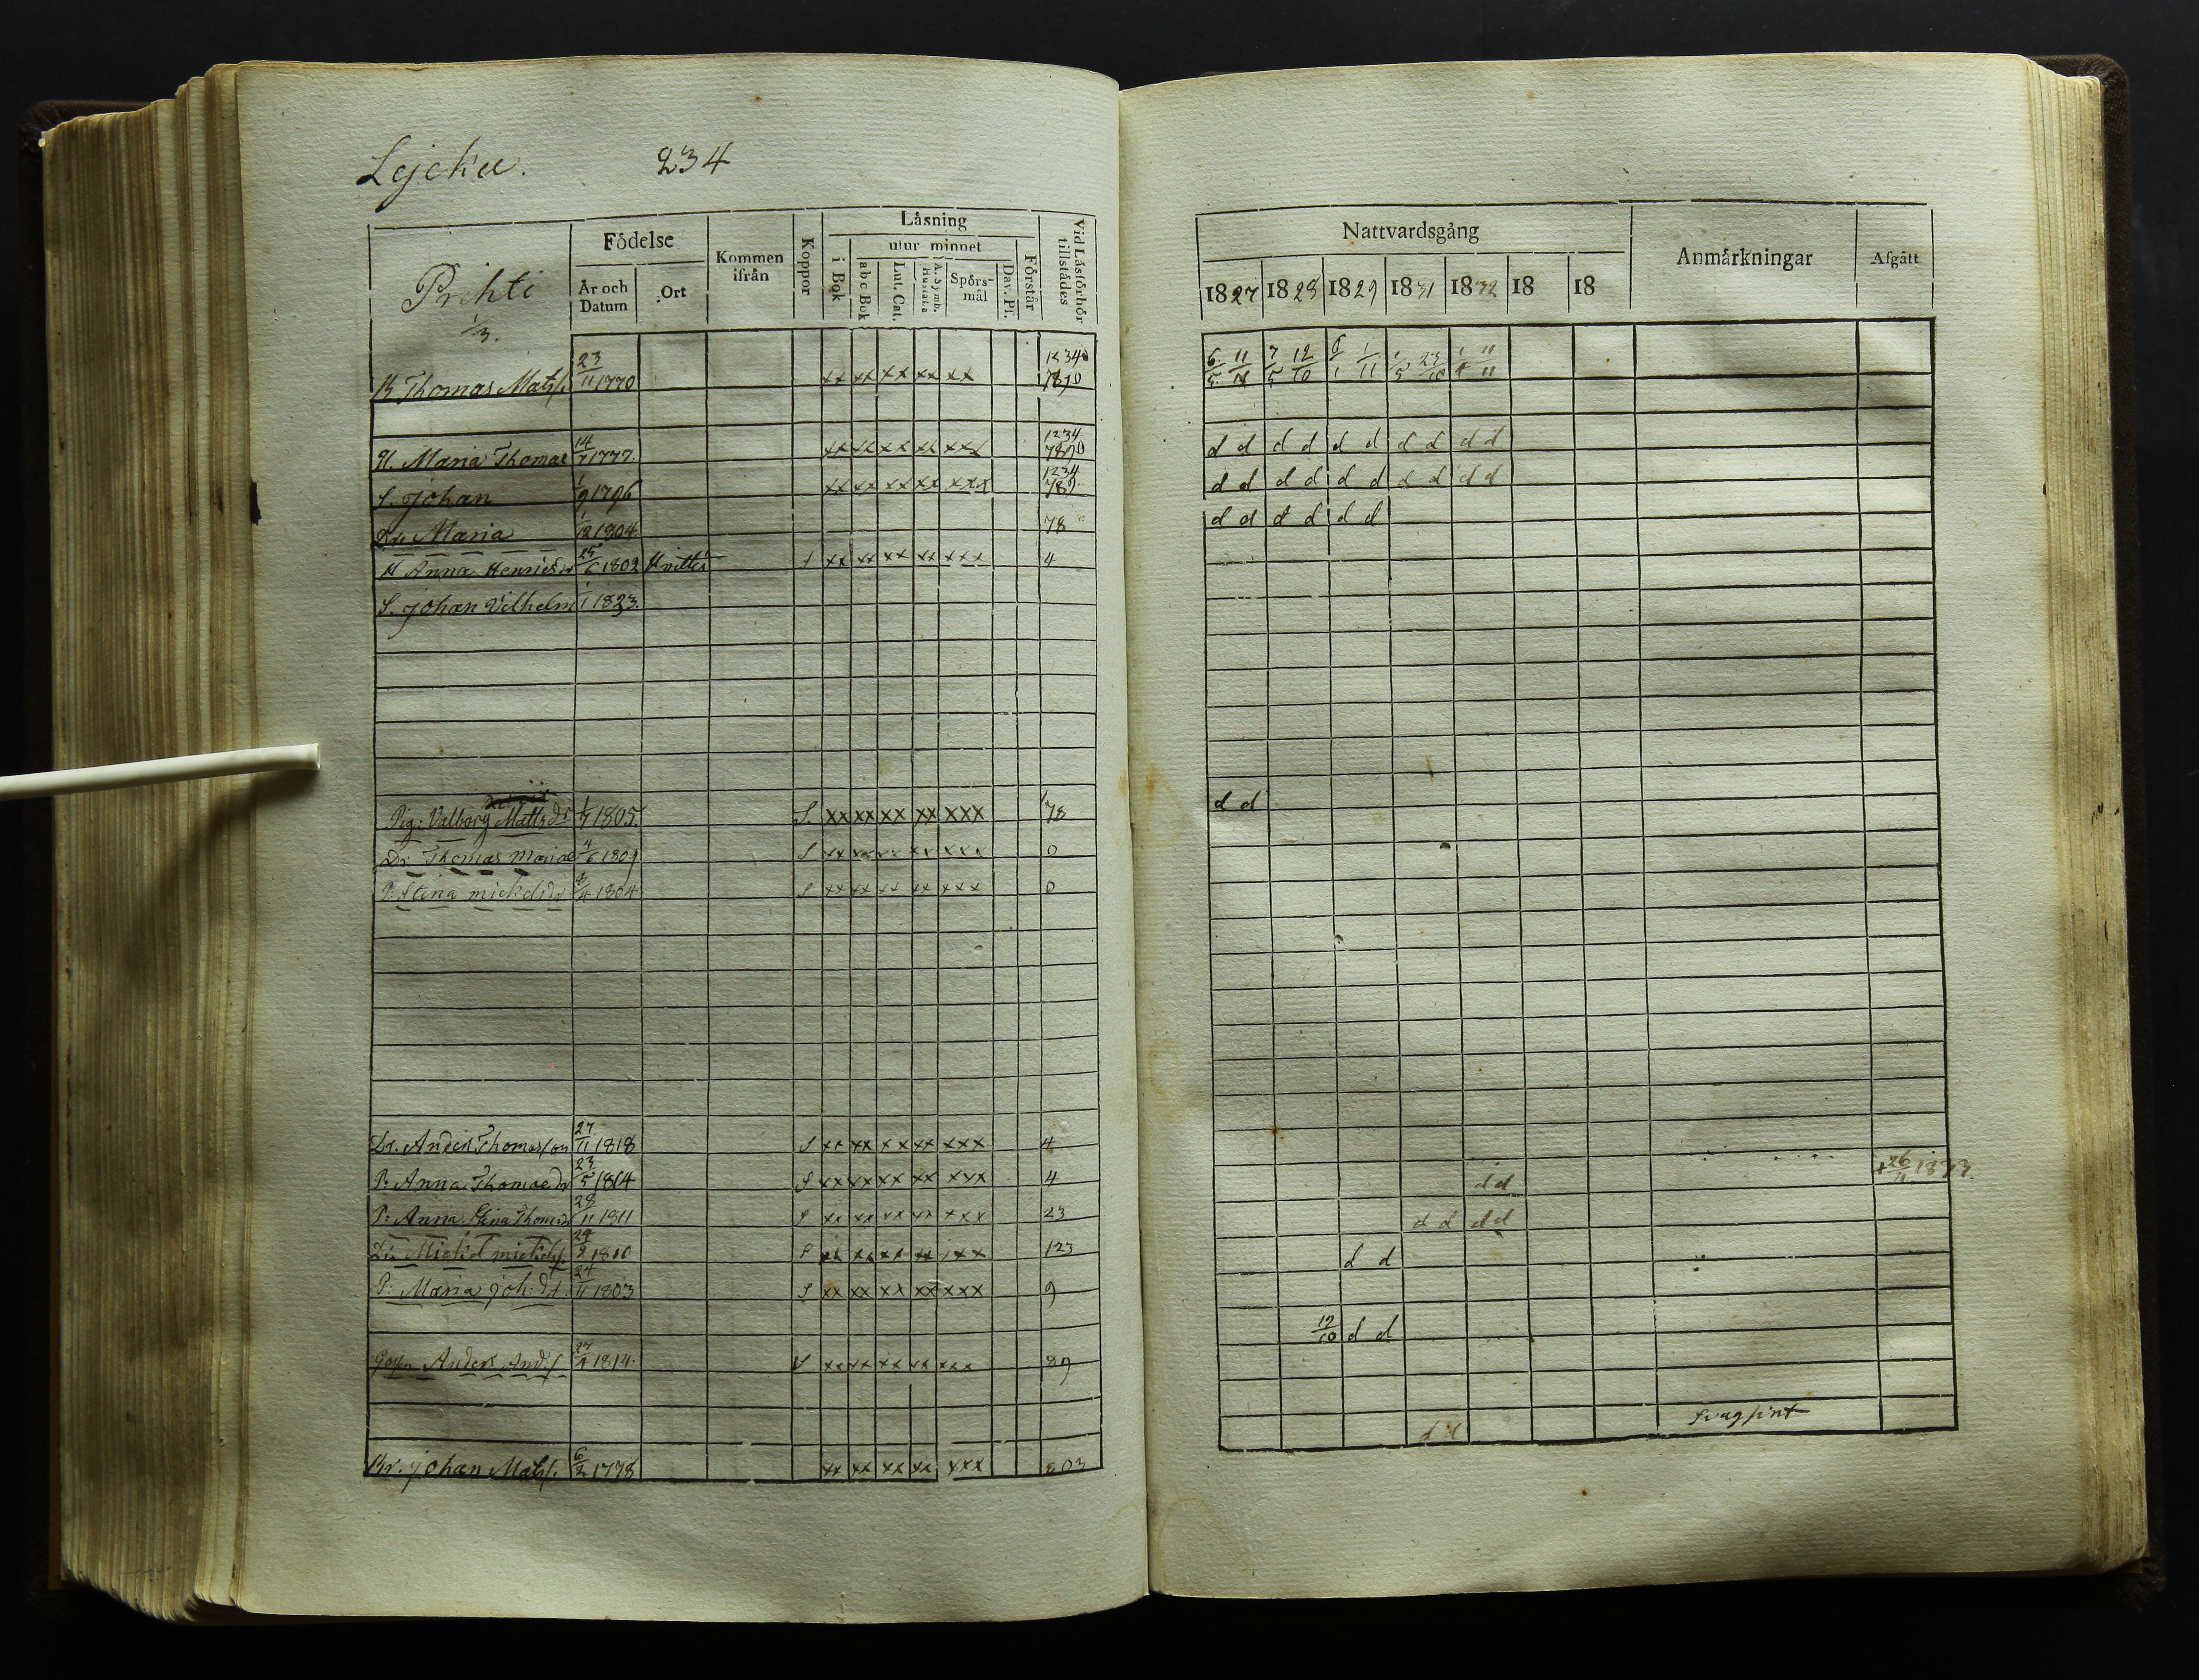 Lejcku. 234
Prihti
1/3.
Födelse
År och Datum
Ort
Kommen ifrån
Koppor
Läsning
i Bok
utur minnet
abc Bok
Lut. Cat.
A. Symb. Hustafla
Spörs-mål
Dav. Ps.
Förstår
Vid Läsförhör tillstädes
B Thomas Matss. 23/11 1770 xx xx xx xx xx 12340 7890
H. Maria Thomae 14/7 1777. xx xx xx xx xxx 1234 7890
S. Johan 1/9 1796 xx xx xx xx xxx 1234 789
Dr. Maria 1/12 1804 78
H Anna Henricsdr 25/6 1802 xx xx xx xx xxx 4
S. Johan Vilhelm 1/1 1823.
Pig: Valborg Mattsdr 1/4 1805. S. xx xx xx xx xxx 78
Dr. Thomas 4/6 1809 S xx xx xx xx xxx 0
P. Stina mickelsdr 8/4 1804 S xx xx xx xx xxx 0
Dr. Anders Thomasson 27/11 1818 S xx xx xx xx xxx 4
P: Anna Thomaedr 23/5 1814 S xx xx xx xx xxx 4
P: Anna Stina Thomaedr 28/11 1811 S xx xx xx xx xxx 23
Dr. Mickel mickelss. 24/2 1810 S xx xx xx xx xxx 123
P: Maria Joh: dr. 24/11 1803 S xx xx xx xx xxx 9
Goss. Anders And.s. 27/4 1814. xx xx xx xx xxx 89
Br. Johan Matss. 6/2 1778 xx xx xx xx xxx 803
Nattvardsgång
Anmärkningar
Afgått
1827 1828 1829 1831 1832 18 18
6/5 11/11 7/5 12/10 1/11 1/5 23/10
d d d d d d d d d d
d d d d d d d d d d
d d d d d d
d d
+ 26/11 1833.
d d
d d d d
d d
12/10 d d
d d svagsint